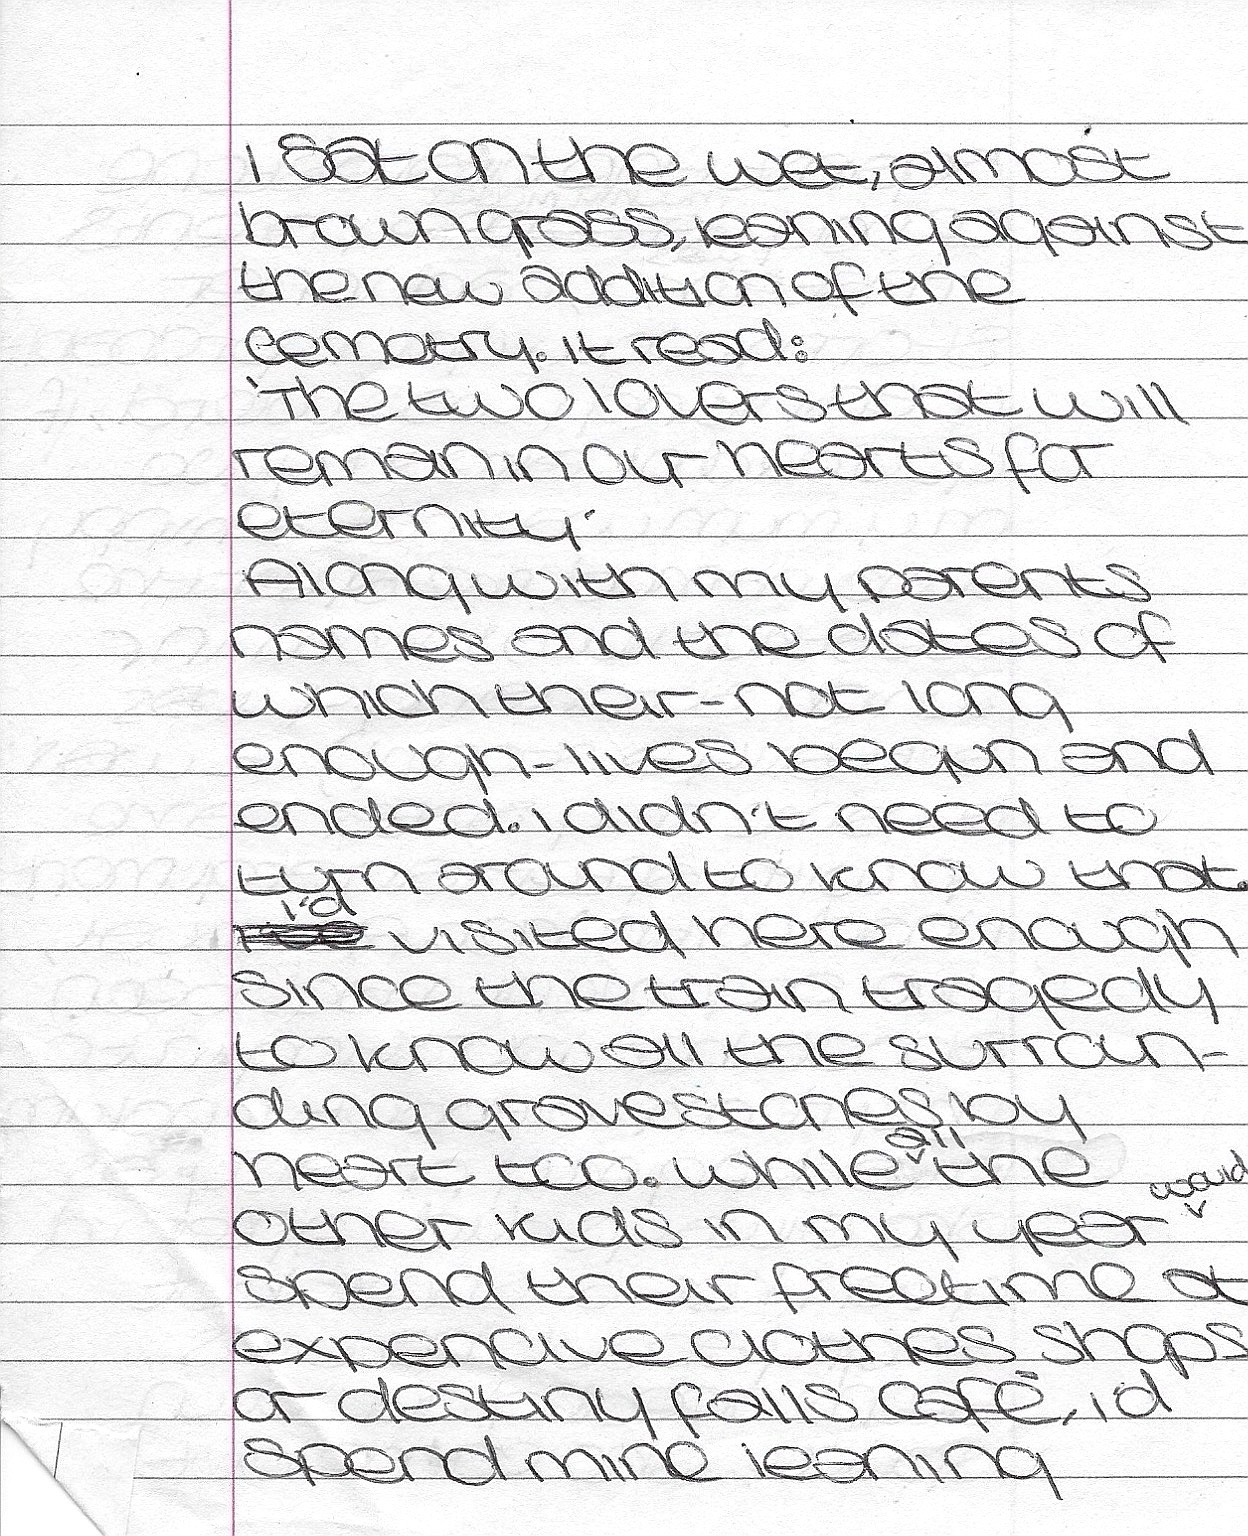 I sat on the wet, almost
brown grass, leaning against
the new addition of the
cemotry. it read:
'The two lovers that will
remain in our hearts for
eternity'
Along with my parents
names and the dates of
which their-not long
enough-lives begun and
ended. I didn't need to
turn around to know that.
i'd visited here enough
since the train tragedy
to know all the surroun-
ding gravestones by
heart too. While all the
other kids in my year would
spend their freetime at
expencive clothes shops
or destiny falls café, i'd
spend mine leaning